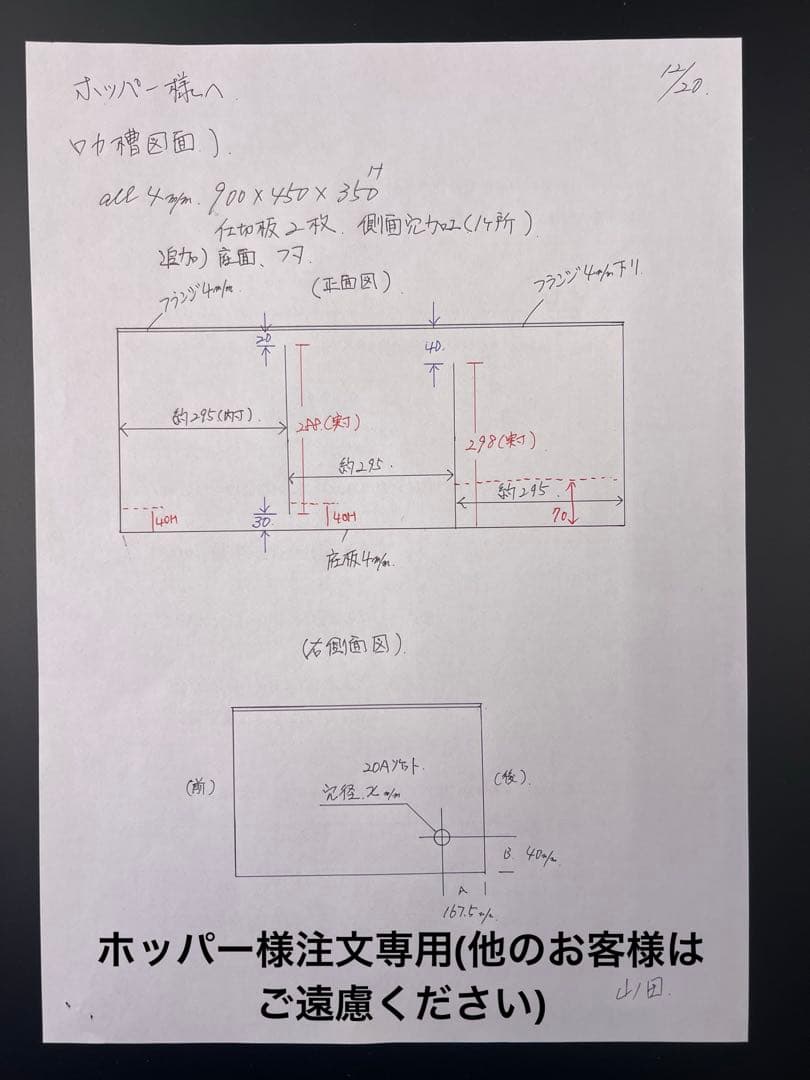 12/20.
ホッパー様へ
ロカ槽図面)
all 4m/m. 900×450×350H
仕切板2枚. 側面穴加工(1ヶ所)
追加) 底面、フタ.
フランジ4m/m.
(正面図).
フランジ4m/m下リ.
20
40.
約295(内寸).
288(実寸)
298(実寸)
約295.
約295.
40H
30.
40H
70
底板4m/m.
(右側面図).
20Aソケット.
(前)
(後).
穴径.xm/m
B. 40m/m.
A
167.5m/m.
ホッパー様注文専用(他のお客様は
ご遠慮ください)
山田.